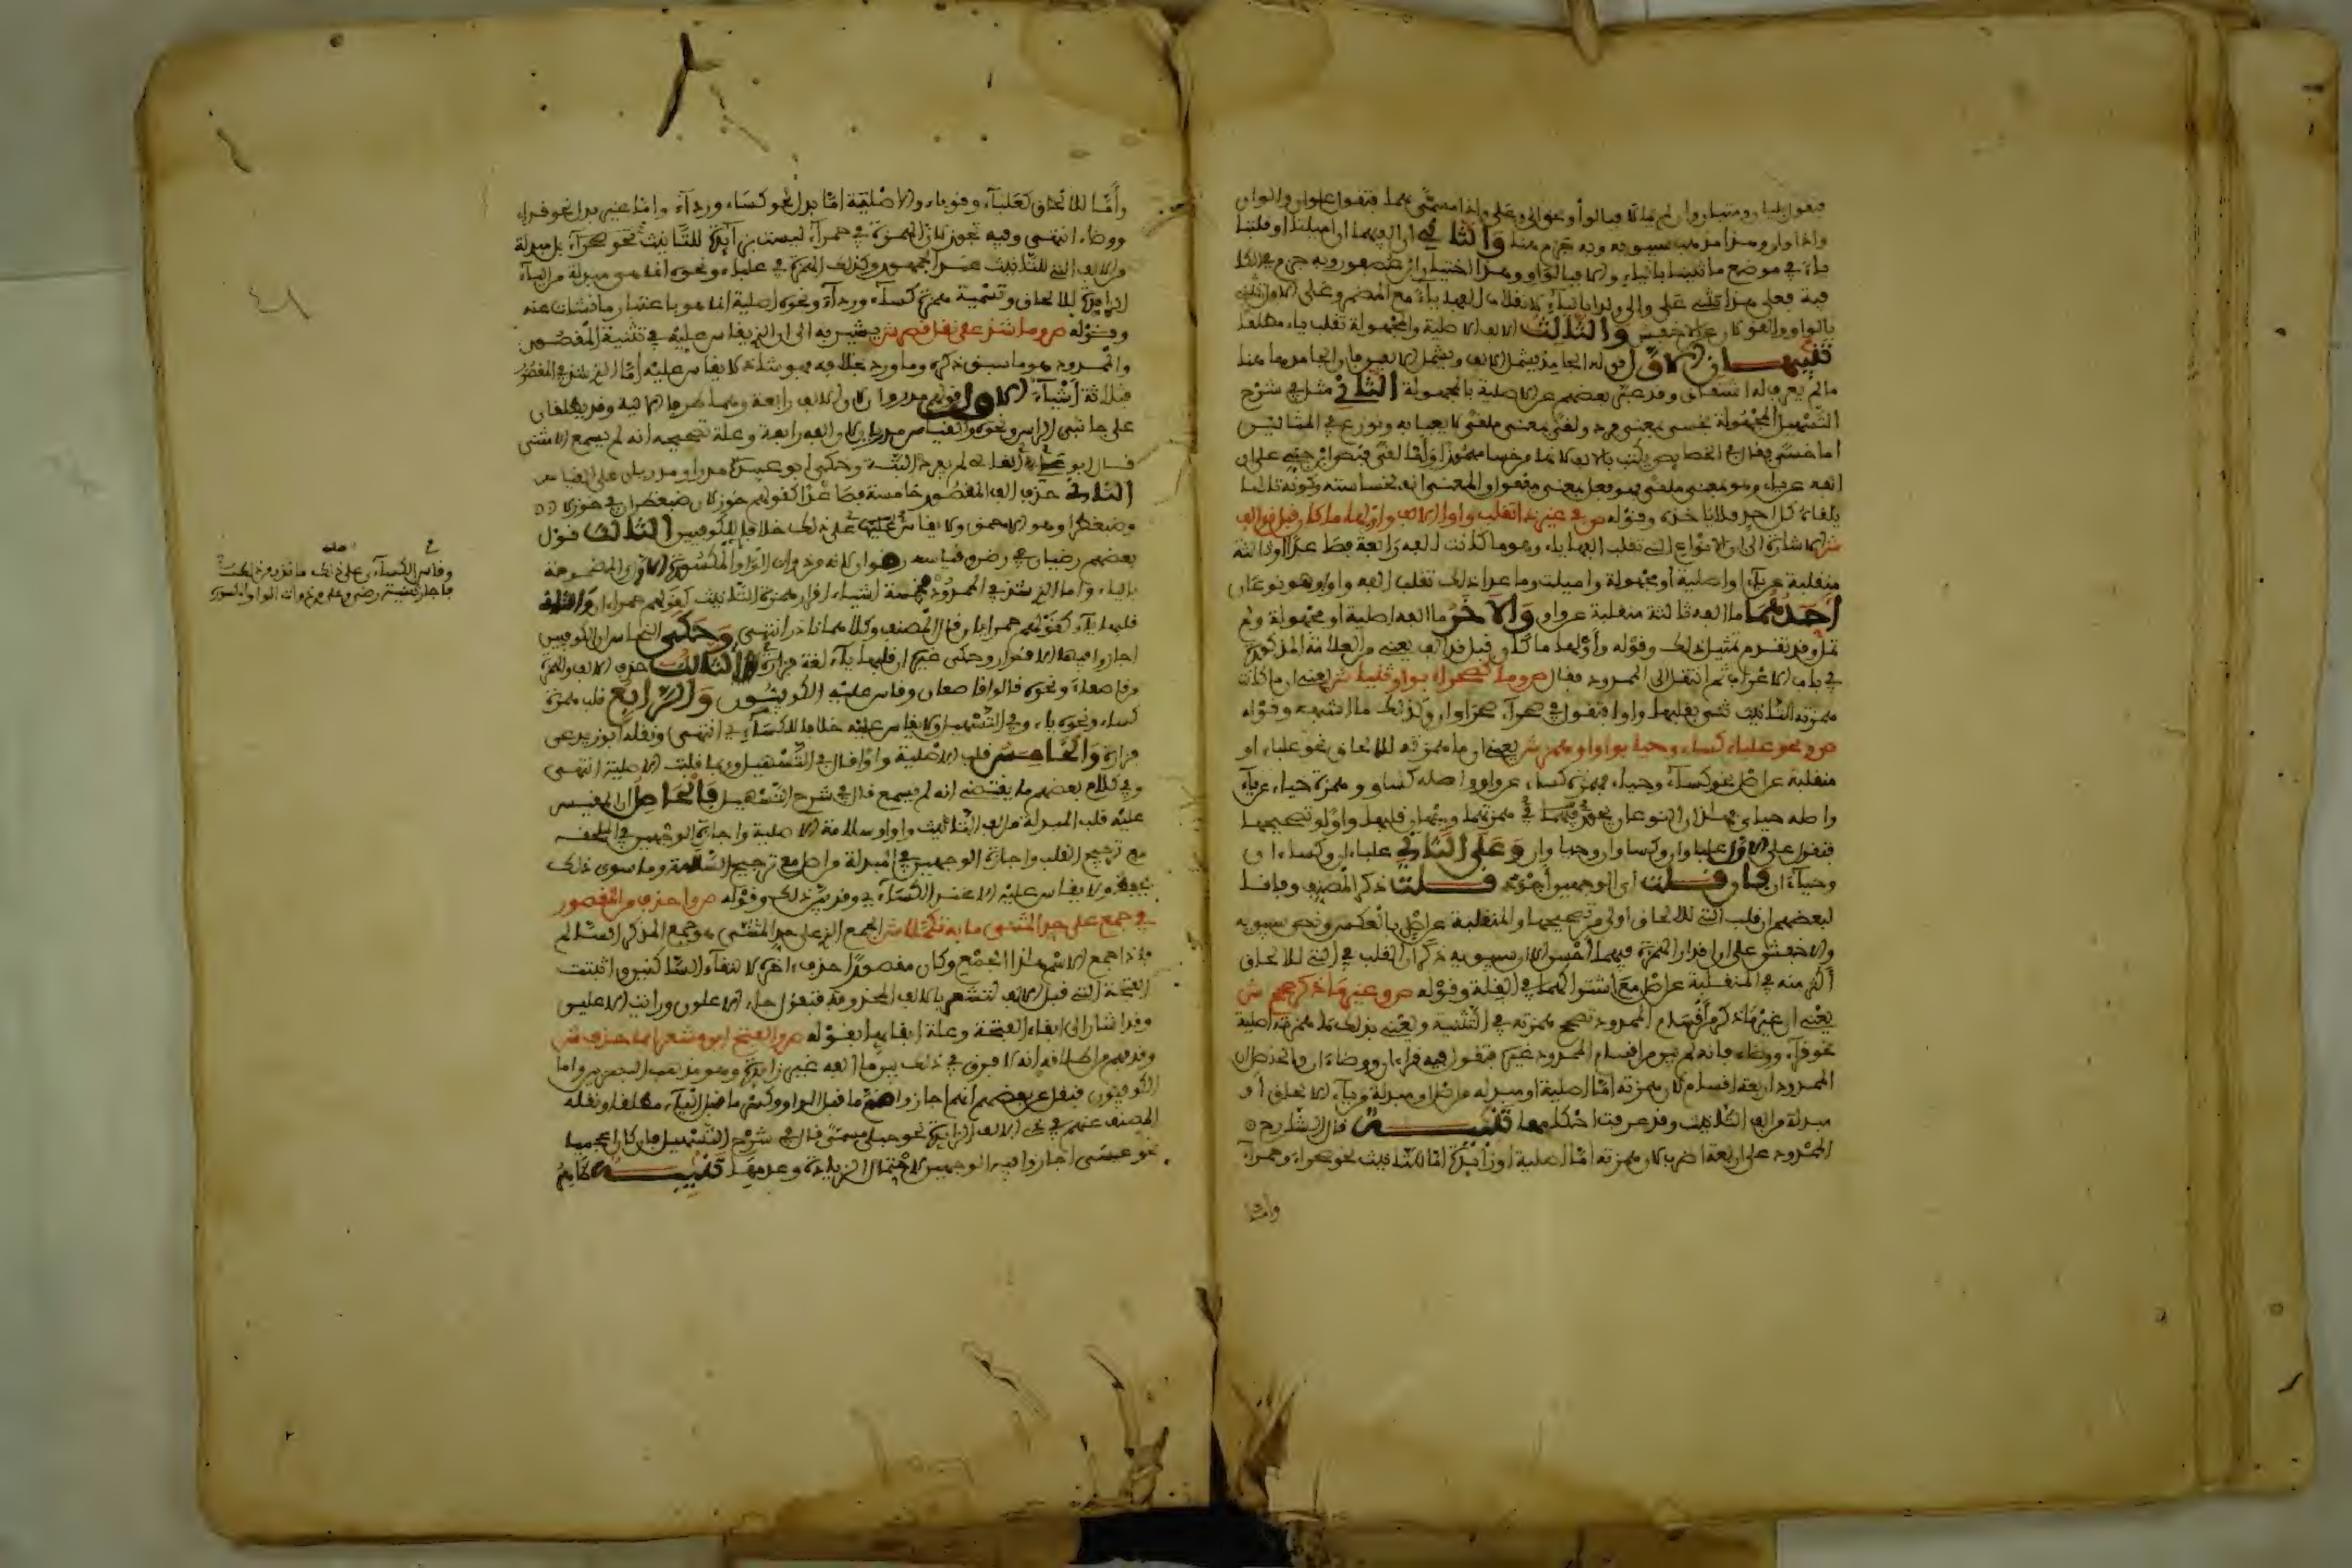 فتقول بليان ومتيان وان لم يمالا فبالواو نحو الى وعلى واذا مسمى بهما فتقول علوان والوان
واذا وان وهذا مذهب سيبويه وبه جزم هنا والثاني ان الفهما ان اميلتا او قلبتا
ياء في موضع ما ثنيتا بالياء والا فبالواو وهذا اختيار ابن عصفور وبه جزم في الكا
فية فعلى هذا يثنى على والى ولدا بالياء لانقلاب الفها ياء مع المضمر وعلى الاول
بالواو والقولان عن الاخفش والثالث الالف الاصلية والمجهولة تقلب ياء مطلقا
تنبيهان الاول قوله الجامد يشمل الالف
مالم يعرف له اشتقاق وقد عبر بعضهم عن الاصلية بالمجهولة الثاني مثل في شرح
التسهيل المجهولة بخسى بمعنى فرد ولقى بمعنى ملقى لا يعبا به ونوزع في المثالين
اما خسى فقال في الخصايص يكتب بالالف لانه من خسا مهموزا واما لقى فنص ابن جني على ان
الفه عن ياء وهو بمعنى ملقى فهو فعل بمعنى مفعول والمعنى انه لخساسته وكونه تافها
يلقاه كل احد فلا ياخذه وقوله ص في غير ذا تقلب واوا الالف واولها ما كان قبل قد الف
ش الاشارة الى الانواع التي تقلب الفها ياء وهو ما كانت الفه رابعة فصاعدا او ثالثة
منقلبة عن ياء او اصلية او مجهولة واميلت وما عدا ذلك تقلب الفه واوا وهو نوعان
احدهما ما الفه ثالثة منقلبة عن واو والاخر ما الفه اصلية او مجهولة ولم
تمل وقد تقدم تمثيل ذلك وقوله واولها ما كان قبل قد الف يعني من العلامة المذكورة
في باب الاعراب ثم انتقل الى الممدود فقال ص وما كصحراء بواو ثنيا ش يعني ان ما كانت
همزته للتانيث ثني بقلبها واوا فتقول في صحراء صحراوان وكذلك ما اشبهه وقوله
ص ونحو علباء كساء وحيا بواو او همز ش يعني ان ما همزته للالحاق نحو علباء او
منقلبة عن اصل نحو كساء وحياء فهمزة كساء عن واو واصله كساو وهمزة حياء عن ياء
واصله حياي فهذان النوعان يجوز في همزتهما وجهان قلبها واوا وتصحيحها
فتقول على الاول علباوان وكساوان وحياوان وعلى الثاني علباءان وكساءان
وحياءان فان قلت اي الوجهين اجود قلت ذكر المصنف وفاقا
لبعضهم ان قلب التي للالحاق اولى من تصحيحها والمنقلبة عن اصل بالعكس ونص سيبويه
والاخفش على ان اقرار الهمزة فيهما احسن الا ان سيبويه ذكر ان القلب في التي للالحاق
اكثر منه في المنقلبة عن اصل مع اشتراكهما في القلة وقوله ص وغير ما ذكر صحح ش
يعني ان غير ما ذكر من اقسام الممدود تصح همزته في التثنية ويعني بذلك ما همزته اصلية
نحو قراء ووضاء فانه لم يبق من اقسام الممدود غيره فتقول فيه قراءان ووضاءان فالحاصل ان
الممدود اربعة اقسام لان همزته اما اصلية او مبدلة من اصل او مبدلة من ياء الالحاق او
مبدلة من الف التانيث وقد عرفت احكامها تنبيه قال الشارح
الممدود على اربعة اضرب لان همزته اما اصلية او زائدة اما للتانيث نحو صحراء وحمراء
واما
واما للالحاق كعلباء وقوباء والاصلية اما بدل نحو كساء ورداء واما غير بدل نحو قراء
ووضاء انتهى وفيه تجوز لان الهمزة في حمراء ليست زائدة للتانيث نحو صحراء بل مبدلة
من الالف التي للتانيث عند الجمهور وكذلك الهمزة في علباء ونحوه انما هو مبدلة من الياء
الزائدة للالحاق وتسمية همزة كساء ورداء ونحوه اصلية انما هو باعتبار ما نشات عنه
وقوله ص وما شذ على نقل قصر ش يشير به الى ان الذي يقاس عليه في تثنية المقصور
والممدود هو ما سبق ذكره وما ورد بخلافه فهو شاذ لا يقاس عليه اما الذي شذ في المقصور
فثلاثة اشياء الاول قولهم مذروان لان الالف رابعة وهما طرفا الالية وقد يطلقان
على جانبي الراس ونحوه والقياس مذريان لان الفه رابعة وعلة تصحيحه انه لم يسمع الا مثنى
قال ابو علي القالي لم يفرد البتة وحكى ابو عبيدة مذرا ومذريان على القياس
الثاني حذف الف المقصور خامسة فصاعدا كقولهم خوزلان ضبغطران في خوزلا
وضبغطرا وهو الاحمق ولا يقاس على ذلك خلافا للكوفيين الثالث قول
بعضهم رضيان في رضى وقياسه رضوان لانه من ذوات الواو المكسورة الاول المضمومة
بالياء واما الذي شذ في الممدود فخمسة اشياء اقرار همزة التانيث كقولهم حمراءان والثاني
قلبها ياء كقولهم حمرايان قال المصنف وكلاهما نادر انتهى وحكى النحاس ان الكوفيين
اجازوا فيها الاقرار وحكى غيره ان قلبها ياء لغة فزارة الثالث حذف الالف والهمزة
وقاصعاء ونحوه قالوا قاصعان وقاس عليه الكوفيون والرابع قلب همزة
كساء ونحوه ياء وفي التسهيل ولا يقاس عليه خلافا للكسائي انتهى ونقله ابو زيد عن
فزارة والخامس قلب الاصلية واوا قال في التسهيل وربما قلبت الاصلية انتهى
وفي كلام بعضهم ما يقتضي انه لم يسمع قال في شرح التسهيل فالحاصل ان المقيس
عليه قلب المبدلة من الف التانيث واوا وسلامة الاصلية واجازة الوجهين في الملحقة
مع ترجيح القلب واجازة الوجهين في المبدلة من اصل مع ترجيح السلامة وما سوى ذلك
يحفظ ولا يقاس عليه الا عند الكسائي وقد بين ذلك وقوله ص واحذف من المقصور
في جمع على حد المثنى ما به تكملا ش الجمع الذي على حد المثنى هو جمع المذكر السالم
فاذا جمع الاسم هذا الجمع وكان مقصورا حذف اخره لالتقاء الساكنين وابقيت
الفتحة التي قبل الالف لتشعر بالالف المحذوفة فتقول جاء الاعلون ورايت الاعلين
وقد اشار الى ابقاء الفتحة وعلة ابقائها بقوله ص والفتح ابق مشعرا بما حذف ش
وقد فهم من اطلاقه انه لا فرق في ذلك بين ما الفه غير زائدة وهو مذهب البصريين واما
الكوفيون فنقل عن بعضهم انهم اجازوا ضم ما قبل الواو وكسر ما قبل الياء مطلقا ونقله
المصنف عنهم في ذي الالف الزائدة نحو حبلى مسمى قال في شرح التسهيل فان كان اعجميا
نحو عيسى اجازوا فيه الوجهين لاحتمال الزيادة وعدمها تنبيه
وقاس الكسائي على ذلك
فاجاز تثنية رضى وعلى من ذوات الواو المكسور